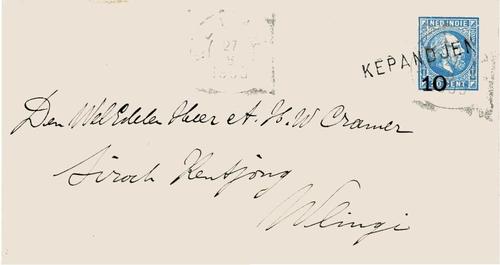 NED. INDIE
KEPANDJEN
10
CENT
27
Den WelEdelen Heer A. H. W Cramer
Siroch Kentjong
Wlingi